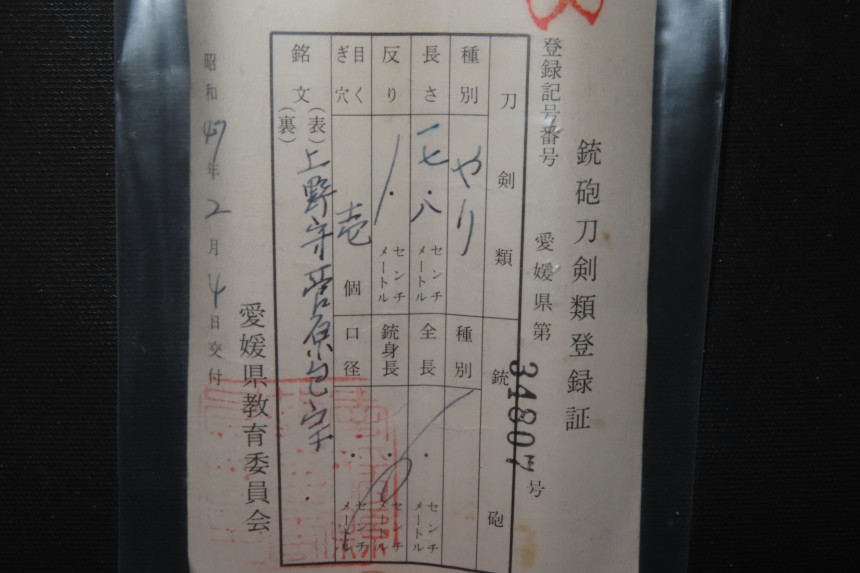 銃砲刀剣類登録証
登録記号番号 愛媛県第 34807 号
刀剣類 銃砲
種別 やり 種別
長さ 一七・八 センチメートル 全長 ・ センチメートル
反り ・ センチメートル 銃身長 ・ センチメートル
目くぎ穴 壱個 口径 ・ センチメートル
銘文 (表) 上野守菅原包宗
(裏)
昭和47年2月4日交付
愛媛県教育委員会